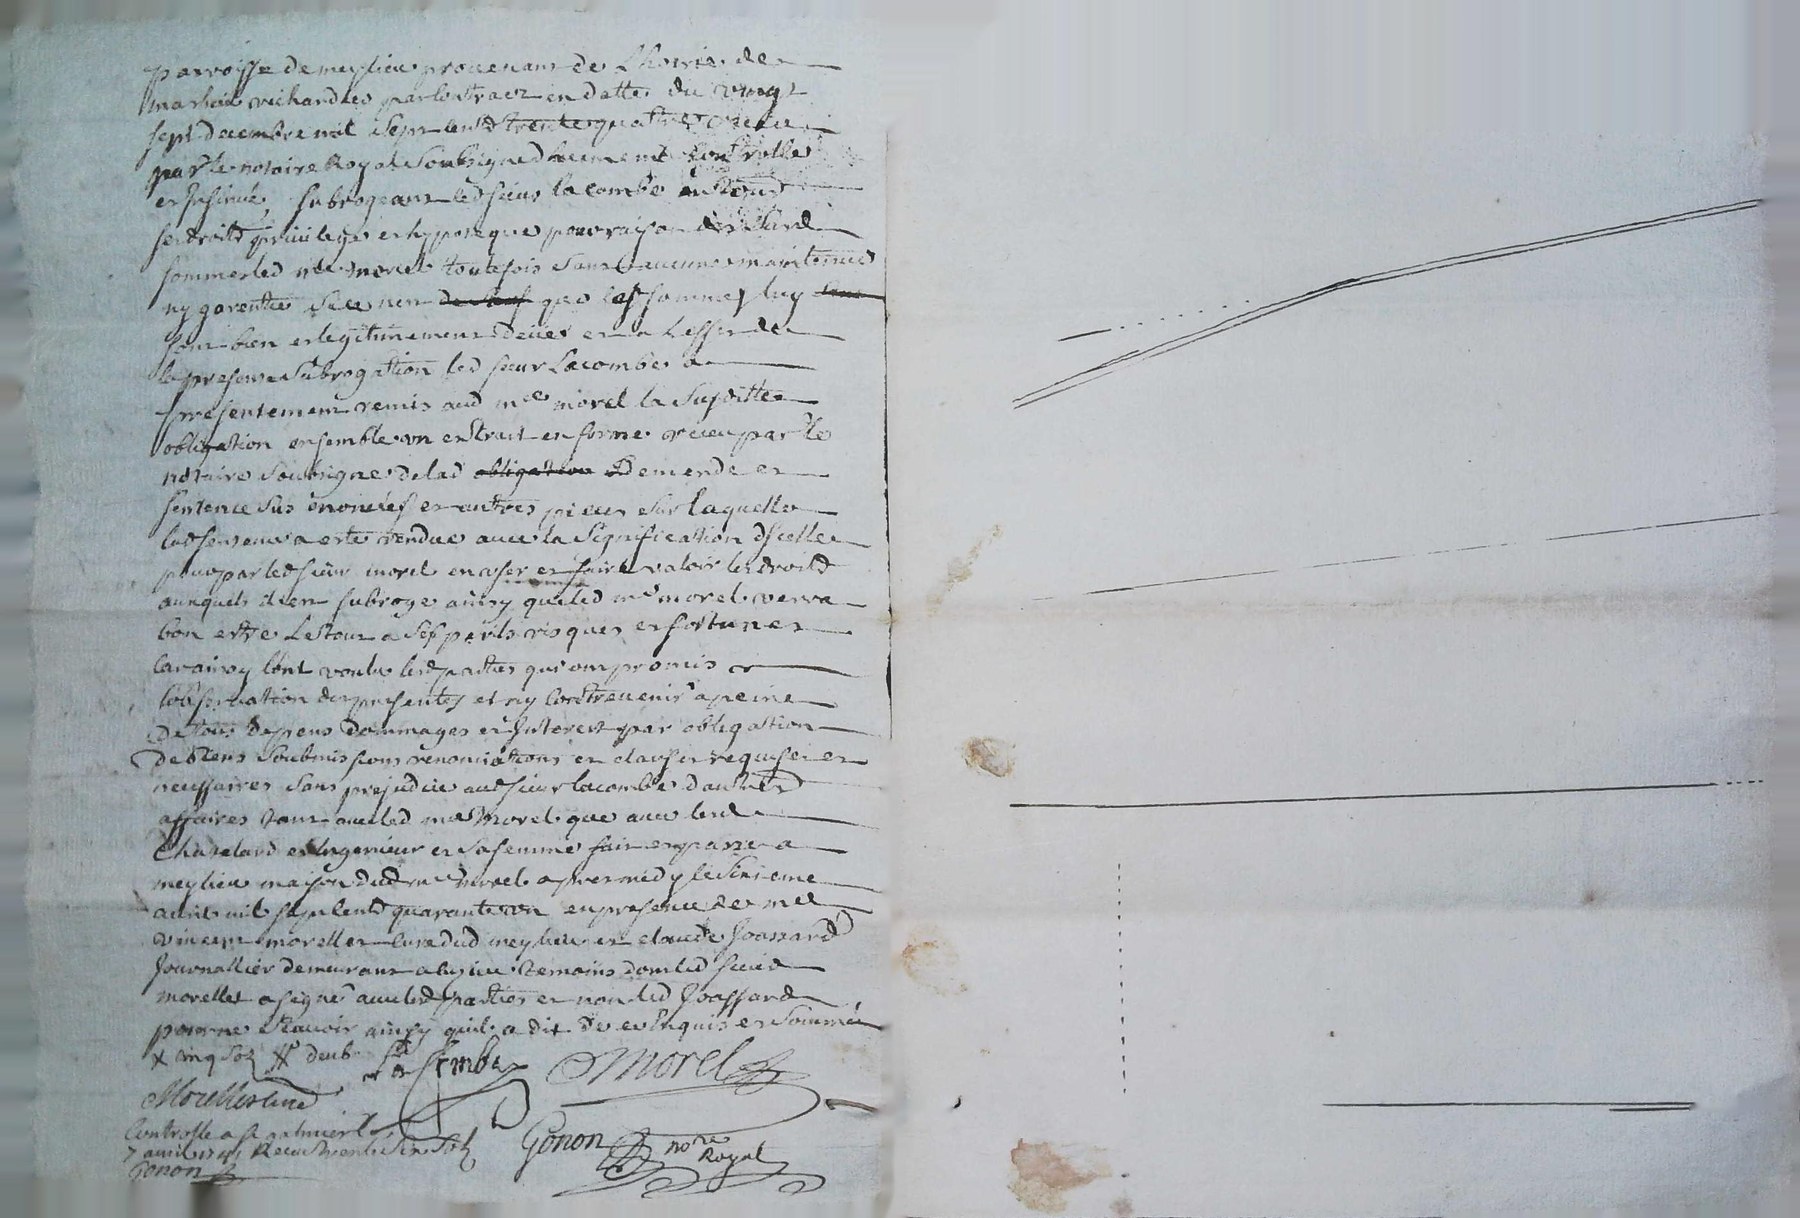 parroisse de meylieu provenant de Lhoirie de
mathieu richard led par Contract en datte du vingt
sept decembre mil sept cent trente quatre receu
par le notaire Royal Soubsigne dheument Controlle
et Insinué, subrogeant led sieur lacombe en tous
ses droits privilege et hypoteque pour raison desd
sommes led me morel toutefois sans aucune maintenue
ny garentie si ce n'est de sauf que les sommes luy sont
sont bien et legitimement deües et a Leffet de
la presente Subrogation led sieur Lacombe a
presentement remis aud me morel la Susditte
obligation ensemble un extrait en forme receu par le
notaire Soubsigne de lad obligation demende et
sentence Sus enoncées et autres pieces sur laquelle
lad sentence a este rendue avec la Signification dicelle
pour par led sieur morel en user et faire valoir les droits
ausquels il est subroge ainsy que led me morel verra
bon estre Le tout a ses perils risques et fortunes
Car ainsy l'ont voulu lesd parties qui ont promis
lobservation des presentes et ny Contrevenir a peine
De tous depens dommages et Interest par obligation
De biens Soubmissions renonciations et clauses requises et
necessaires Sans prejudice aud sieur lacombe dautres
affaires tant avec led me Morel que avec lesd
Chatelard et Ingenieur et Sa femme fait et passé a
meylieu maison dud me morel apres midy le Sixieme
avril mil sept cents quarante un en presence de me
vincent morellet Cure dud meylieu et claude Joassard
Journallier demeurant a temoins dont led sieur
morellet a signe avec lesd parties et non led Joassard
pour ne Scavoir ainsy quil a dit de ce Enquis et Sommé
x cinq Sols
La Combe Morel
Morellet Curé
Controlle a St galmier le
7 avril 1741 Receu Sols
Gonon Gonon nore Royal